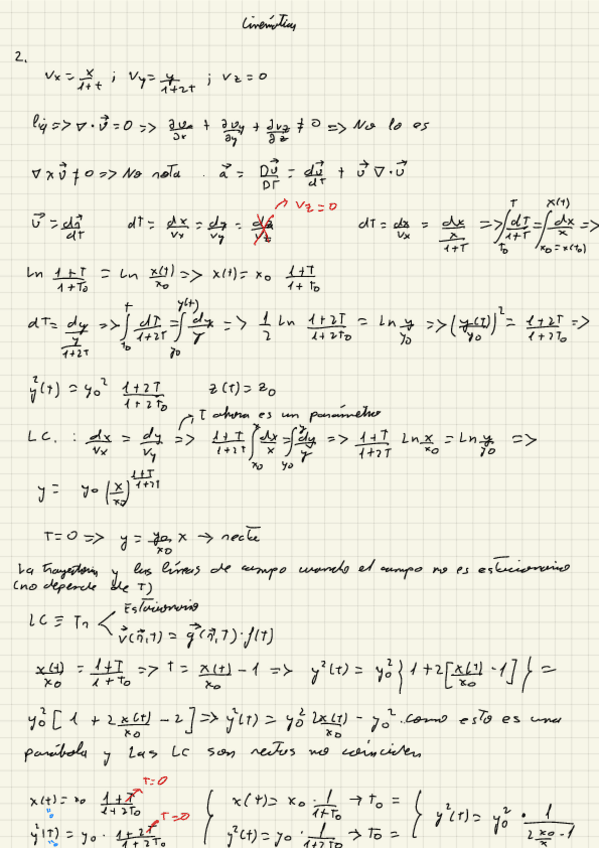 Cinemática
2.
Vx = x/(1+t) ; Vy = y/(1+2t) ; Vz = 0
liq => ∇·v⃗ = 0 => ∂vx/∂x + ∂vy/∂y + ∂vz/∂z ≠ 0 => No lo es
∇ x v⃗ ≠ 0 => No rota . a⃗ = Dv⃗/DT = dv⃗/dT + v⃗ ∇·v⃗
→ Vz = 0
v⃗ = dr⃗/dT dT = dx/Vx = dy/Vy = dz/Vz dT = dx/Vx = dx/(x/(1+T)) => ∫_{T0}^{T} dT/(1+T) = ∫_{x0=x(t0)}^{x(t)} dx/x =>
Ln (1+T)/(1+T0) = Ln x(t)/x0 => x(t) = x0 (1+T)/(1+T0)
dT = dy/(y/(1+2T)) => ∫_{t0}^{t} dT/(1+2T) = ∫_{y0}^{y(t)} dy/y => 1/2 Ln (1+2T)/(1+2T0) = Ln y/y0 => (y(t)/y0)² = (1+2T)/(1+2T0) =>
y²(t) = y0² (1+2T)/(1+2T0) z(t) = z0
→ T ahora es un parámetro
LC. : dx/Vx = dy/Vy => (1+T)/(1+2T) ∫_{x0}^{x} dx/x = ∫_{y0}^{y} dy/y => (1+T)/(1+2T) Ln x/x0 = Ln y/y0 =>
y = y0 (x/x0)^{(1+T)/(1+2T)}
T=0 => y = y0/x0 x → recta
La trayectoria y las líneas de campo cuando el campo no es estacionario
(no depende de T)
LC ≡ Tr < Estacionario
v⃗(r⃗,t) = g⃗(r⃗,T)·f(t)
x(t)/x0 = (1+T)/(1+T0) => t = x(t)/x0 - 1 => y²(t) = y0² { 1+2 [x(t)/x0 - 1] } =
y0² [ 1 + 2x(t)/x0 - 2 ] => y²(t) = y0² 2x(t)/x0 - y0². como esto es una
parábola y las LC son rectas no coinciden
T=0
x(t) = x0 (1+T)/(1+2T0) { x(t) = x0 · 1/(1+T0) → t0 = {
T=0
y²(t) = y0 · (1+2T)/(1+2T0) { y²(t) = y0 · 1/(1+2T0) → T0 = { y²(t) = y0² · 1/(2x0/x - 1)